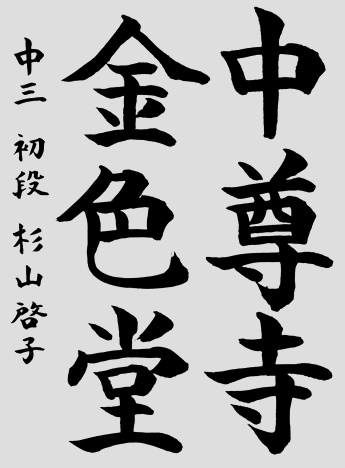 中尊寺
金色堂
中三 初段 杉山啓子